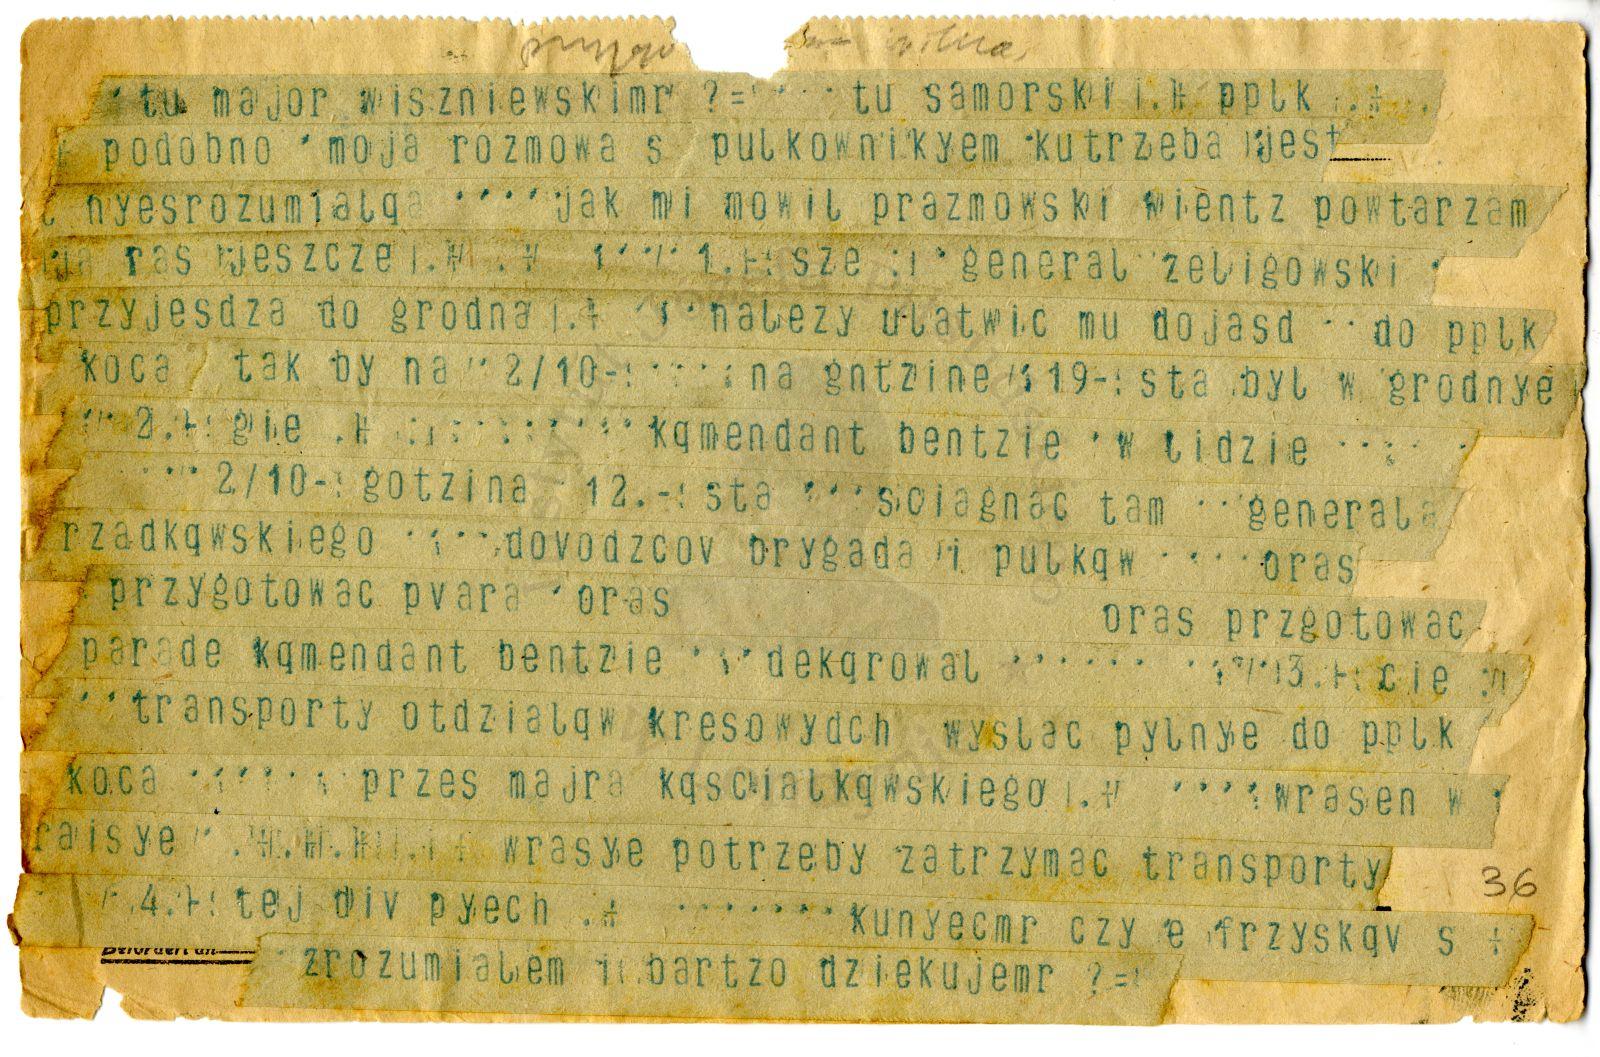 tu major wiszniewskimr ?= tu samorski i.+ pplk .+
podobno moja rozmowa s pulkownikyem kutrzeba jest
nyesrozumialqa jak mi mowil prazmowski wientz powtarzam
ja ras jeszcze 1.+ sze general zeligowski
przyjesdza do grodna .+ nalezy ulatwic mu dojasd do pplk
koca tak by na 2/10- na gntzine 19- sta byl w grodnye
2.+ gie .+ kqmendant bentzie w lidzie
2/10- gotzina 12.- sta sciagnac tam generala
rzadkqwskiego dovodzcov brygada i pulkqw oras
przygotowac pvara oras oras przgotowac
parade kqmendant bentzie dekqrowal 3.+ cie
transporty otdzialqw kresowydch wyslac pylnye do pplk
koca przes majra kqscialkqwskiego .+ wrasen w
raisye wrasye potrzeby zatrzymac transporty
36
4.+ tej div pyech .+ kunyecmr czy e frzyskqv s +
Befördert an
zrozumialem i bartzo dziekujemr ?=